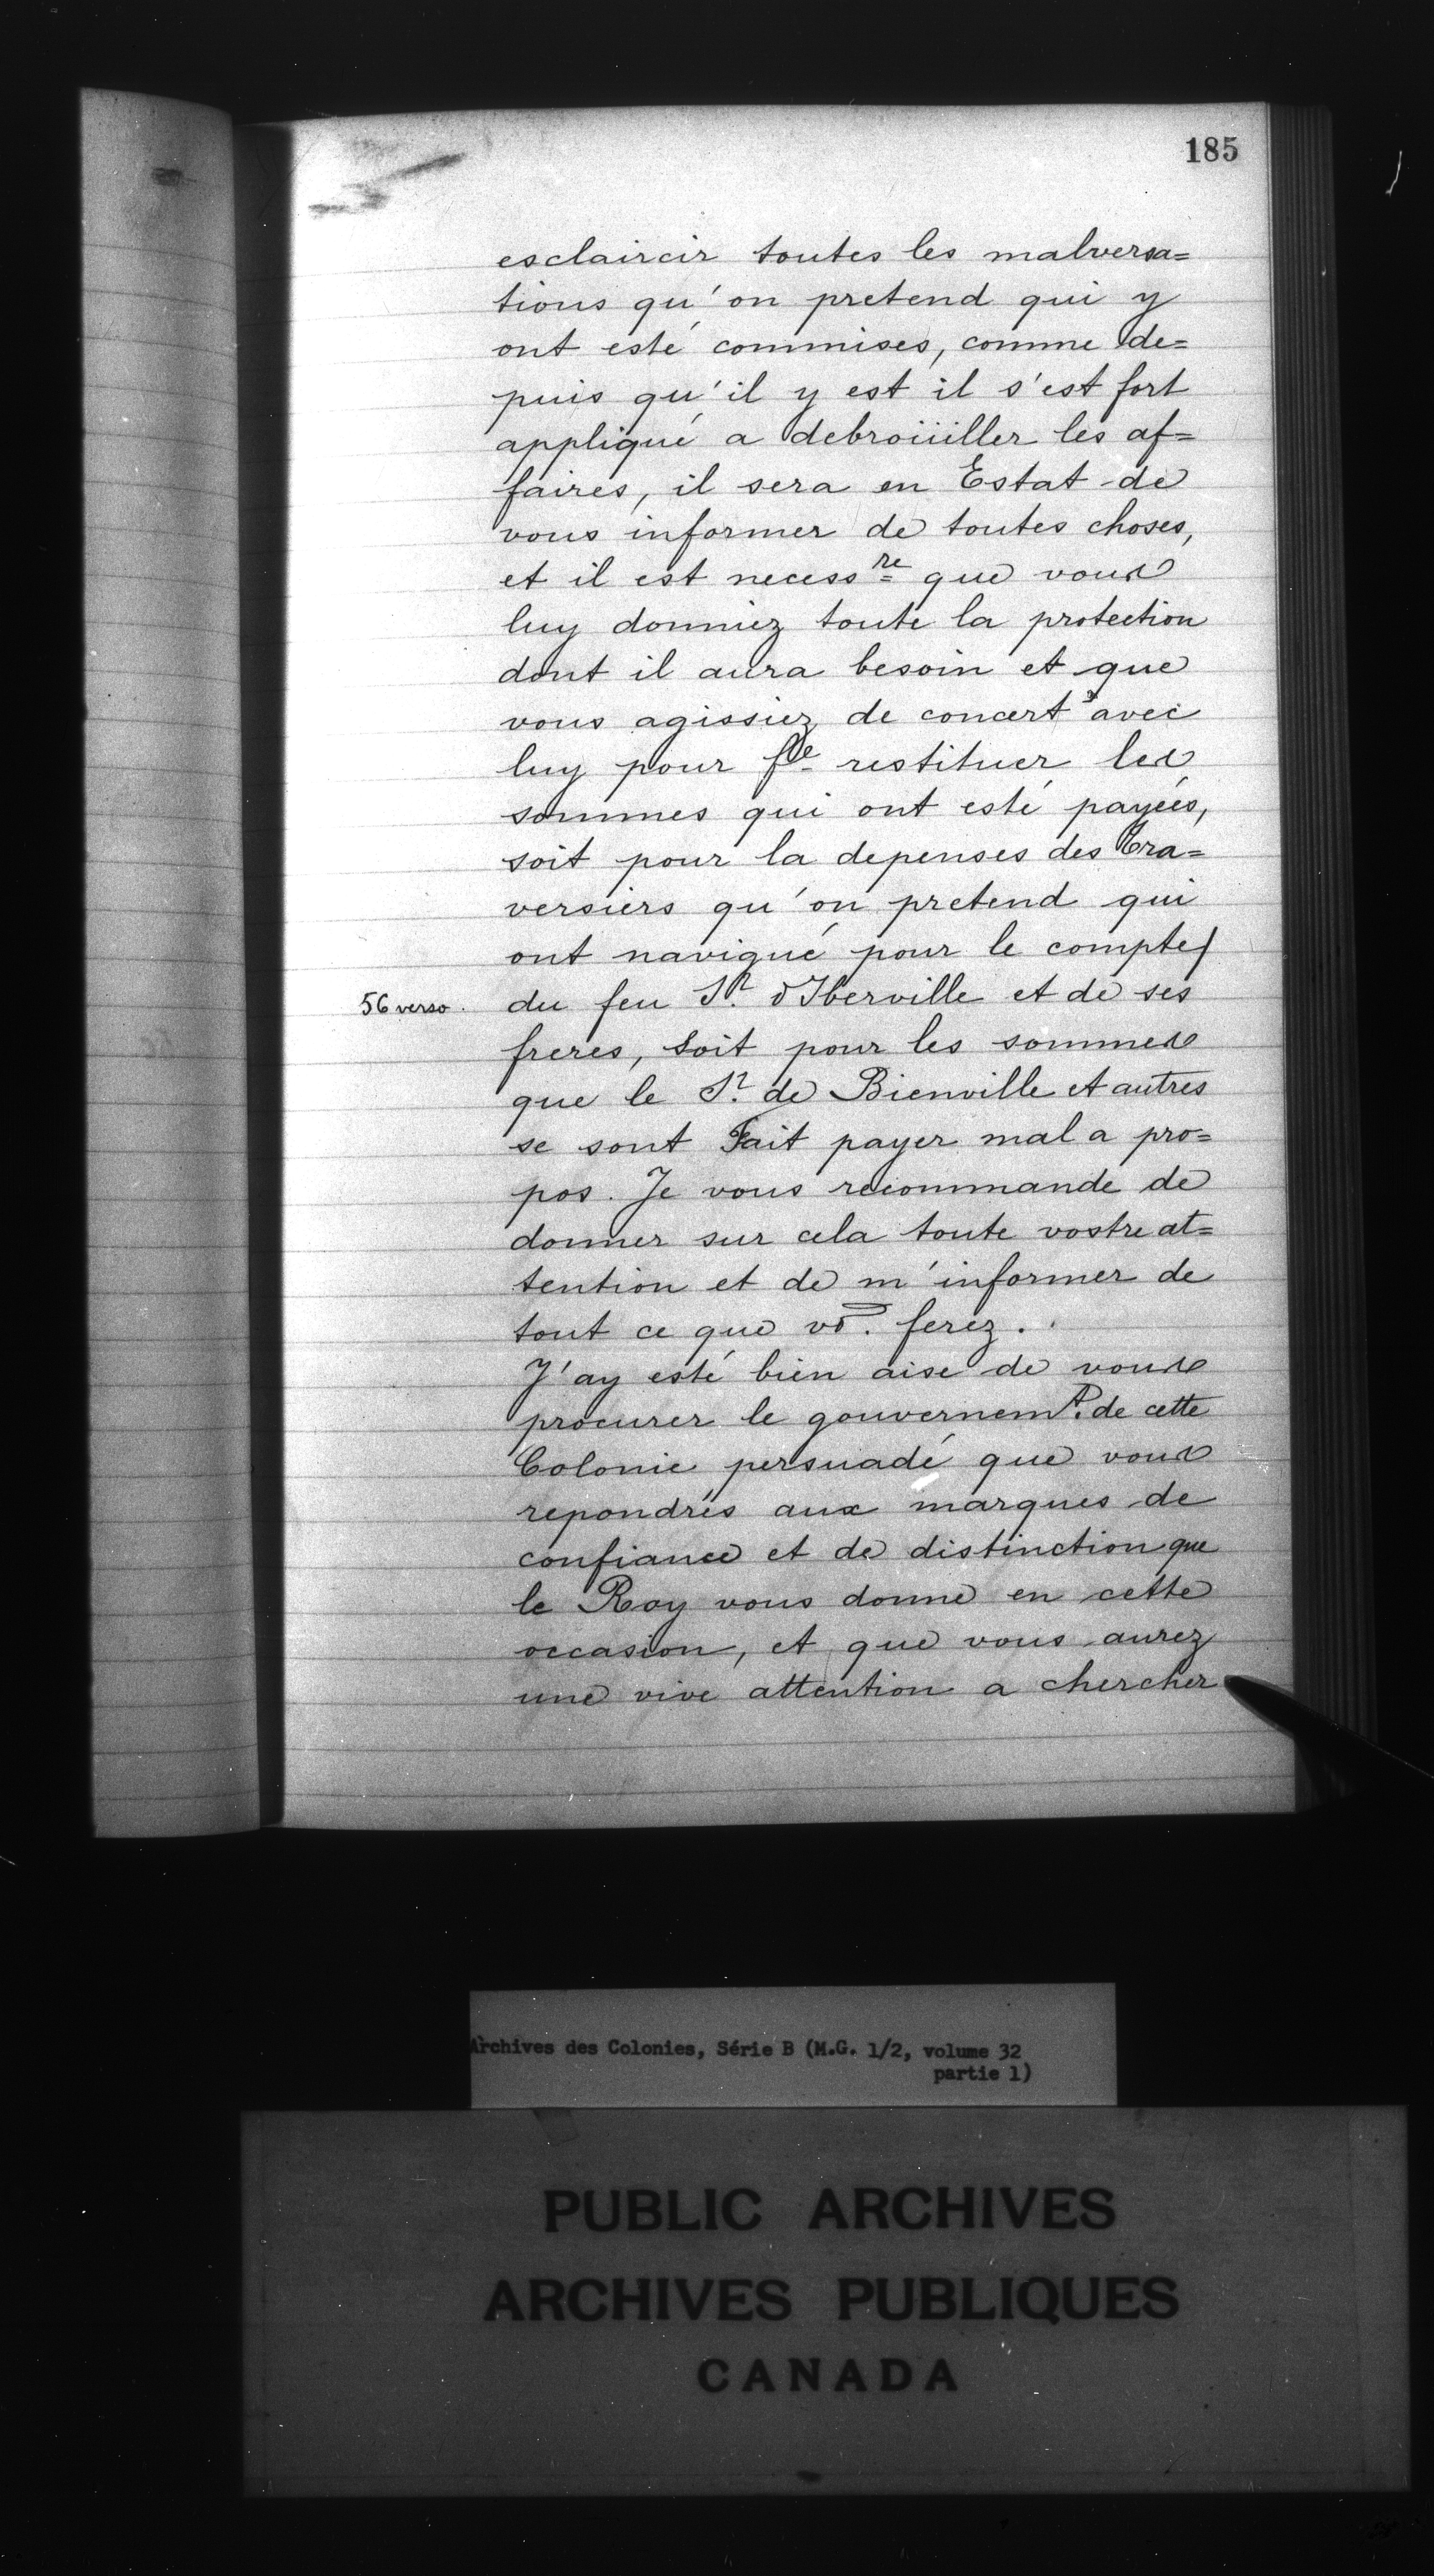 185
esclaircir toutes les malversa=
tions qu'on pretend qui y
ont esté commises, comme de=
puis qu'il y est il s'est fort
appliqué a debroüiller les af=
faires, il sera en Estat de
vous informer de toutes choses,
et il est necess.re que vous
luy donniez toute la protection
dont il aura besoin et que
vous agissiez de concert avec
luy pour f.e restituer les
sommes qui ont esté payées,
soit pour la depenses des Tra=
versiers qu'on pretend qui
ont navigué pour le compte
56 verso. du feu S.r d'Iberville et de ses
freres, soit pour les sommes
que le S.r de Bienville et autres
se sont Fait payer mal a pro=
pos. Je vous recommande de
donner sur cela toute vostre at=
tention et de m'informer de
tout ce que vs. ferez.
J'ay esté bien aise de vous
procurer le gouvernem.t de cette
Colonie persuadé que vous
repondrés aux marques de
confiance et de distinction que
le Roy vous donne en cette
occasion, et que vous aurez
une vive attention a chercher
Archives des Colonies, Série B (M.G. 1/2, volume 32
partie 1)
PUBLIC ARCHIVES
ARCHIVES PUBLIQUES
CANADA